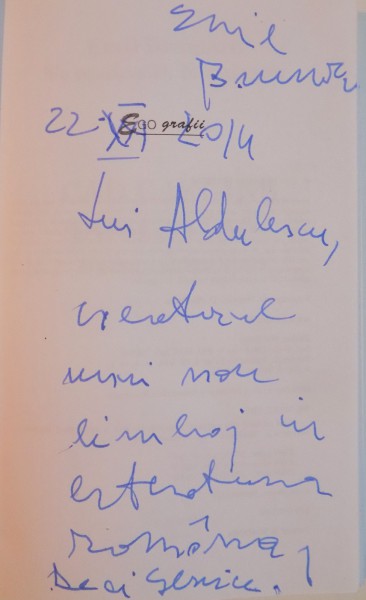 Emil
Brumaru
22 XI 2014
EGO grafii
Lui Aldulescu,
creatorul
unui nou
limbaj in
literatura
română,